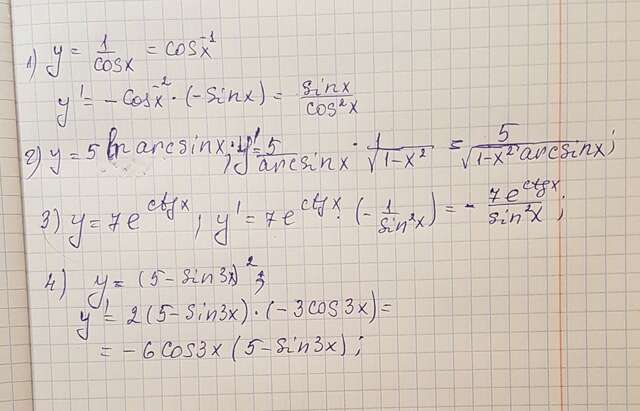 1) y = 1/cosx = cosx⁻¹
y' = -cosx⁻² · (-sinx) = sinx/cos²x
2) y = 5 ln arcsinx; y' = 5/arcsinx · 1/√(1-x²) = 5/(√(1-x²) arcsinx);
3) y = 7e^(ctgx); y' = 7e^(ctgx) · (-1/sin²x) = -7e^(ctgx)/sin²x;
4) y = (5-sin3x)²;
y' = 2(5-sin3x) · (-3cos3x) =
= -6cos3x (5-sin3x);